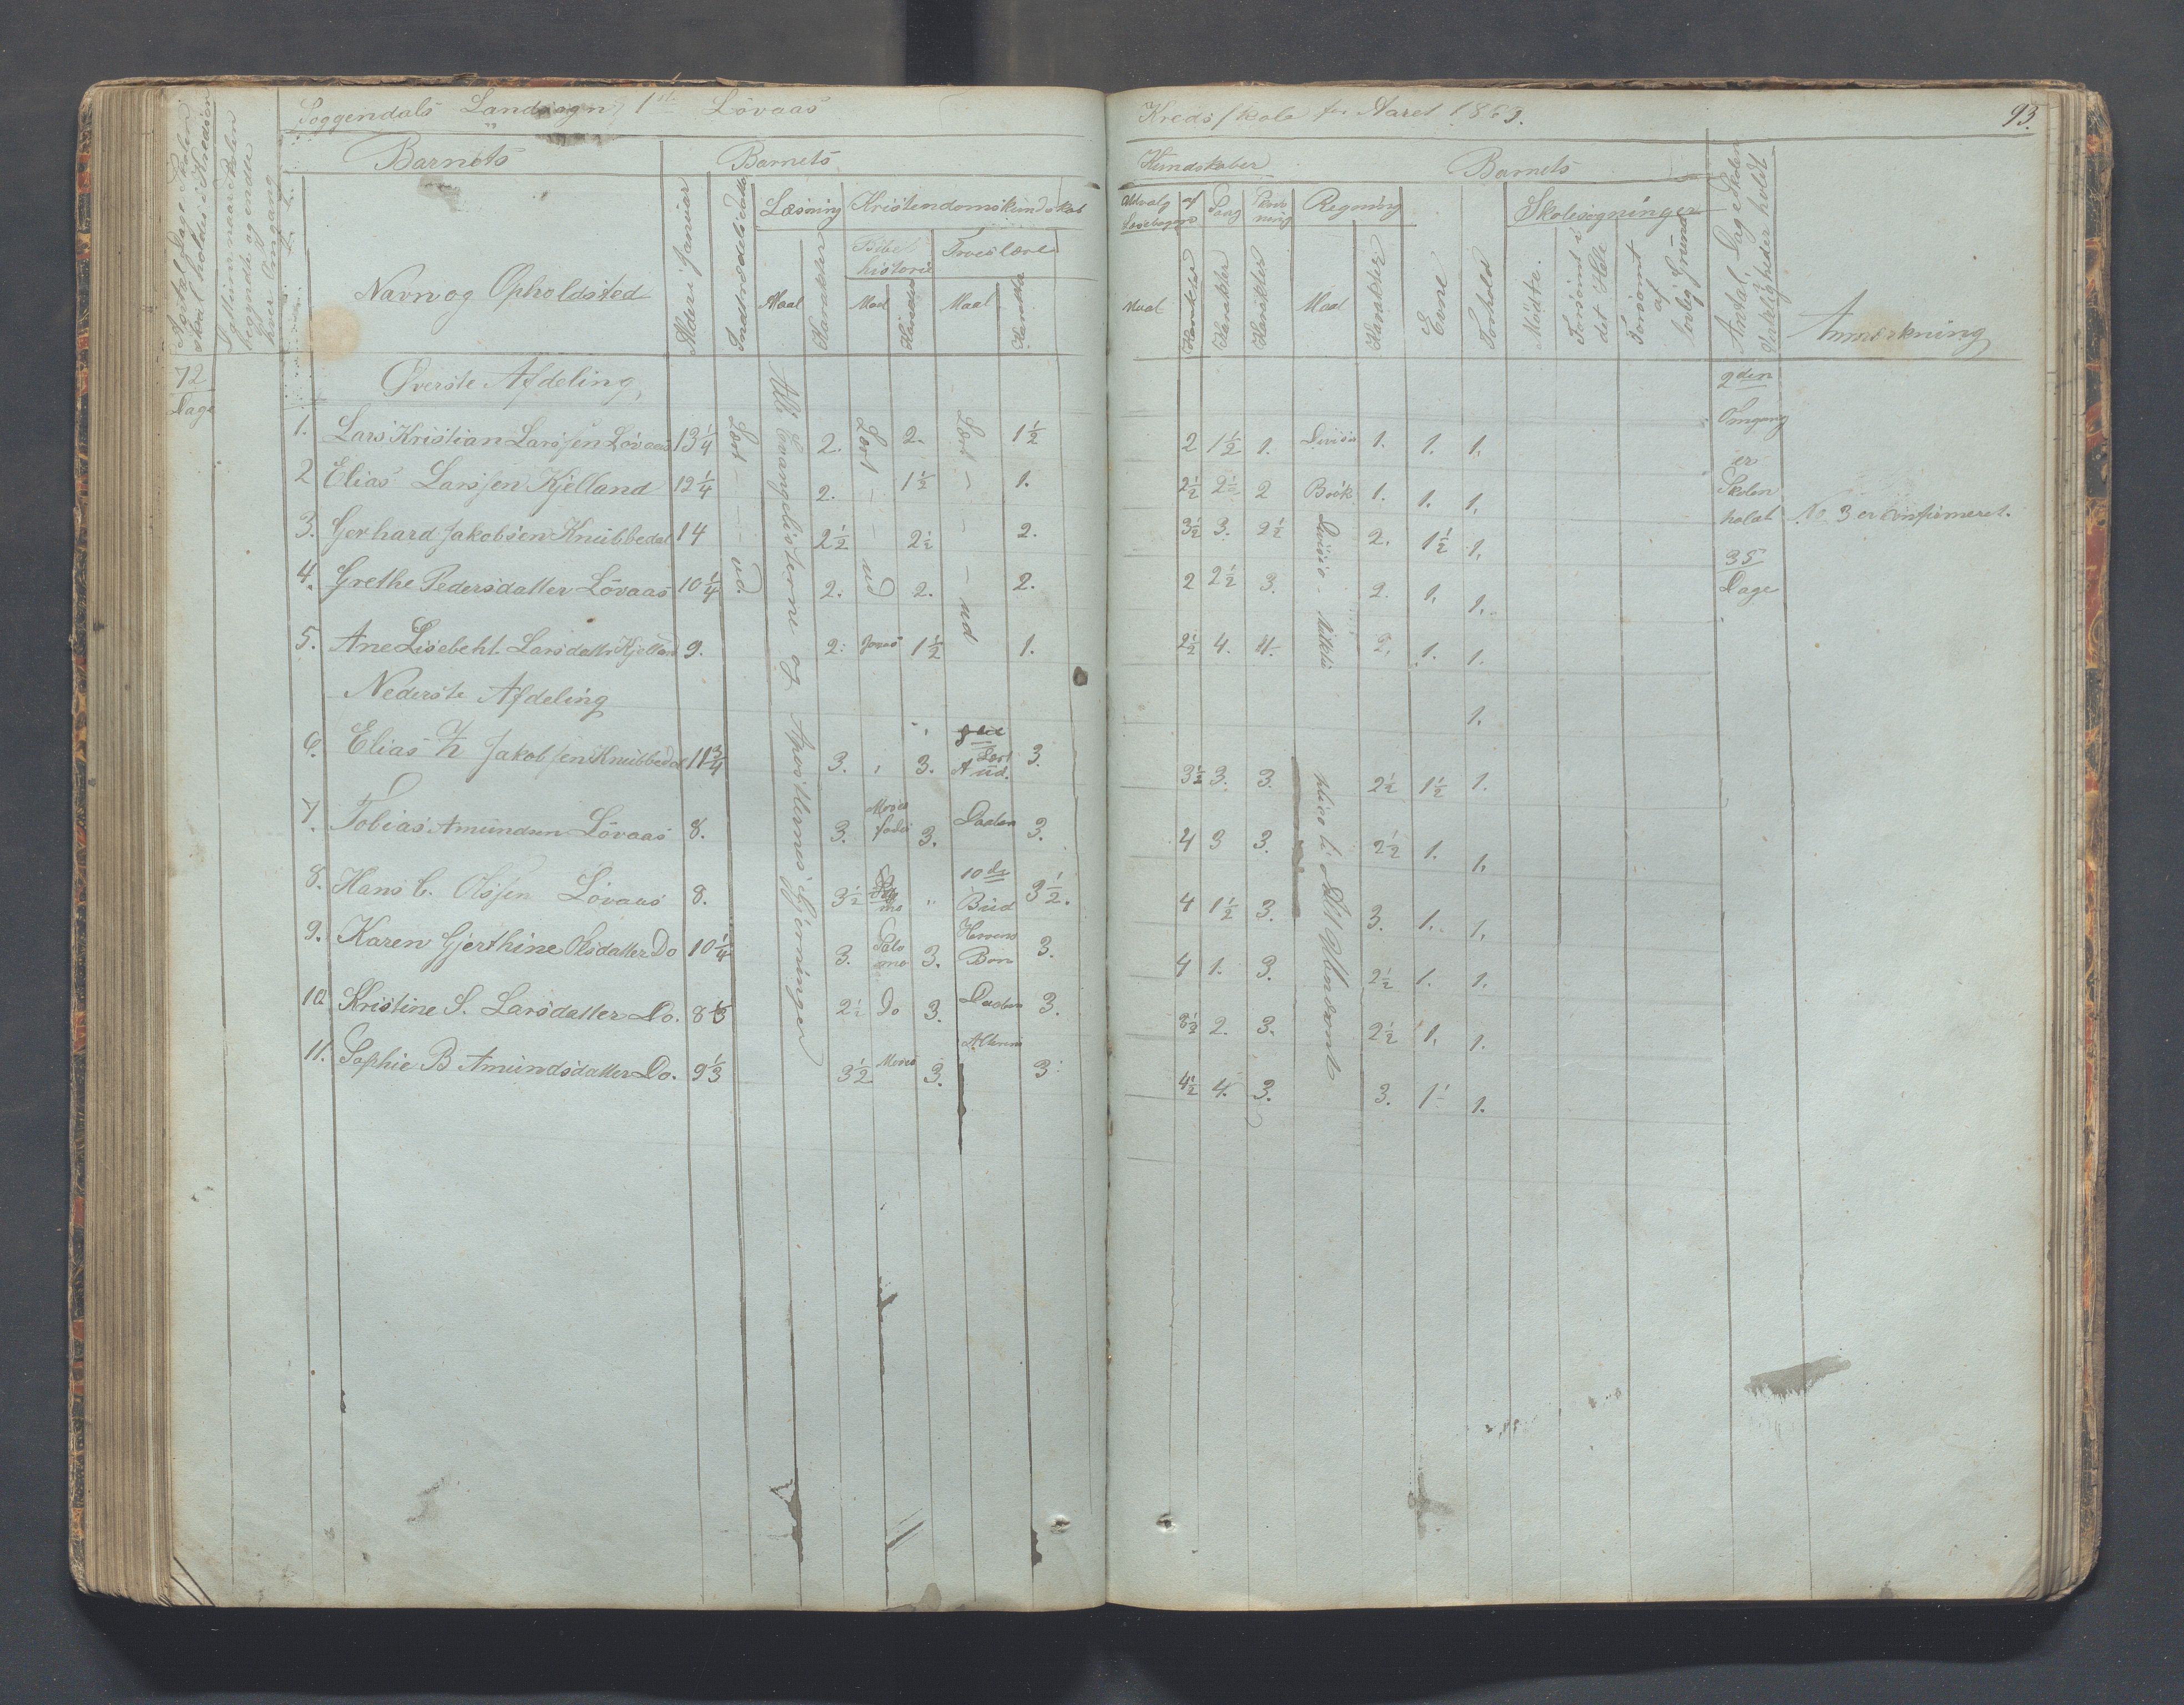 Soggendals Landsogn, 1ste Lövaas
Kredsskole for Aaret 1863.
93.
Antal Dage Skolen skal holdes i Kredsen
Barnets
Barnets
Kundskaber
Barnets
Navn og Opholdsted
Alder i Januar
Indtrædelsesdatum
Læsning
Kristendomskundskab
Bibelhistorie
Troeslære
Maal
Karakter
Maal
Karakter
Maal
Karakter
Udvalg af Læsebogen
Sang
Skrivning
Regning
Maal
Karakter
Karakter
Karakter
Maal
Karakter
Evne
Forhold
Skolesøgninger
Mødte.
Forsømt i det Hele
Forsømt af lovlig Grund
Antal Dage Skolen i Virkeligheden holdt
Anmærkning
72
Dage
Øverste Afdeling
1. Lars Kristian Larssen Lövaas 13 1/4 2. 2. 1 1/2 2 1 1/2 1. Divisio 1. 1. 1.
2 Elias Larssen Kjelland 12 1/4 2. 1 1/2 1. 2 1/2 2 1/2 2 Brök 1. 1. 1.
3. Gerhard Jakobsen Knubbedal 14 2 1/2 2 1/2 2. 3 1/2 3. 2 1/2 Divisio 2. 1 1/2 1.
4. Grethe Pedersdatter Lövaas 10 1/4 2. 2. 2. 2 2 1/2 3. 2. 1. 1.
5. Ane Lisebeht Larsdatter Kjelland 9. 2. Jonas 1 1/2 1. 2 1/2 4. 4. 2. 1. 1.
Lært – – – ud.
Lært – – ud
Lært – – – ud
Alt Evangelisterne og Apostlernes gjerninger
Nederste Afdeling
1.
6. Elias Z Jakobsen Knubbedal 11 3/4 3. 3. Lært ud. 3. 3 1/2 3. 3. 2 1/2 1 1/2 1.
7. Tobias Amundsen Lövaas 8. 3. Moses 3. Daaben 3. 4 3 3. 2 1/2 1. 1.
8. Hans C. Olssen Lövaas 8. 3 1/2 " 10de Bud 3 1/2. 4 1 1/2 3. 3. 1. 1.
9. Karen Gjerthine Olsdatter Do 10 1/4 3. Salomo 3. Herrens Bøn 3. 4 1. 3. 2 1/2 1. 1.
10 Kristine S. Larsdatter Do. 8 1/3 2 1/2 Do 3. Daaben 3. 3 1/2 2. 3. 2 1/2 1. 1.
11. Sophie B Amundsdatter Do. 9 1/3 3 1/2 Moses 3. Alterens 3 4 1/2 4. 3. 3. 1 1.
2den
Omgang
er
Skolen
holdt
35
Dage
No 3 er konfirmeret.